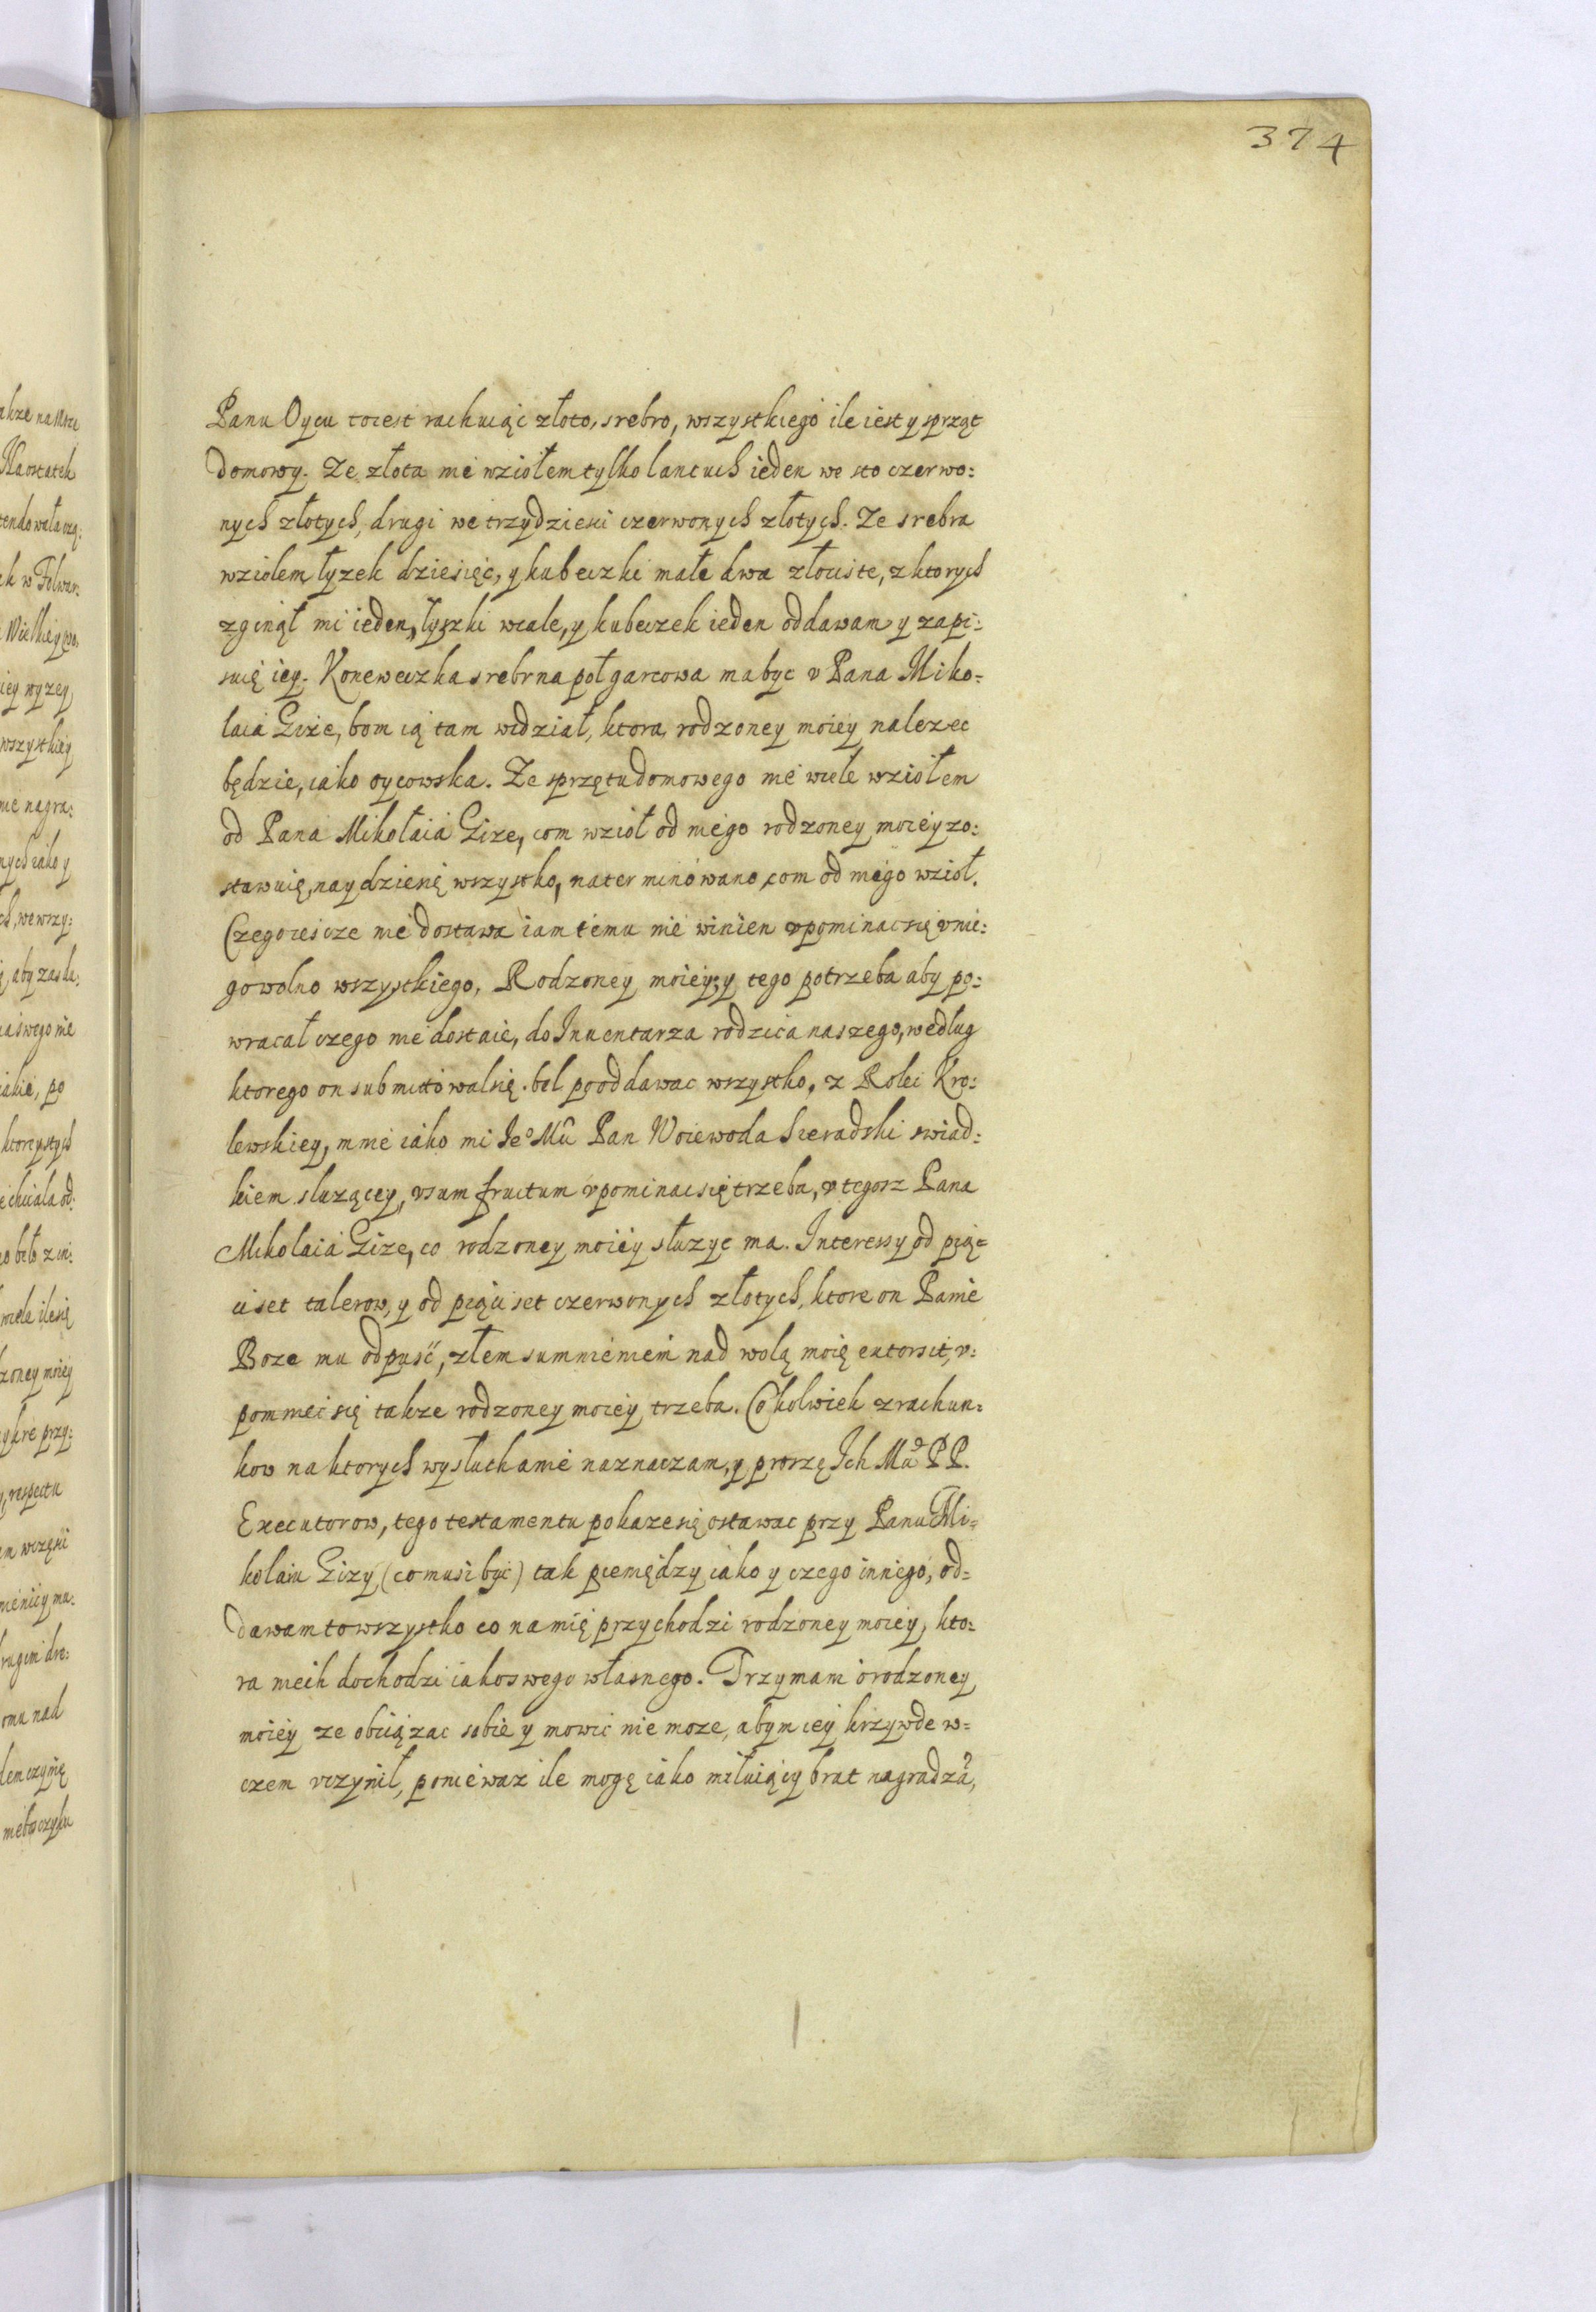 374
Panu Oycu toiest rachuiąc złoto, srebro, wszystkiego ile iest y sprząt
domowy. Ze złota nie wziołem tylko lancuch ieden we sto czerwo:
nych złotych, drugi we trzydziesci czerwonych złotych. Ze srebra
wziolem łyzek dziesięc, y kubeczki małe dwa złociste, z ktorych
zginął mi ieden, łyszki wcale, y kubeczek ieden oddawam y zapi:
suię iey. Koneweczka srebrna połgarcowa ma byc v Pana Miko:
laia Gize, bom ią tam widział, ktora rodzoney moiey nalezec
będzie, iako oycowska. Ze sprzętu domowego nie wiele wziołem
od Pana Mikołaia Gize, com wzioł od niego rodzoney moiey zo:
stawuię, naydzie się wszystko, naterminowano com od niego wzioł.
Czego iescze nie dostawa iam temu nie winien vpominac się v nie:
go wolno wszystkiego, Rodzoney moiey, y tego potrzeba aby po:
wracał czego nie dostaie, do Inuentarza rodzica naszego, według
ktorego on submittowal się bel pooddawac wszystko, z Rolei Kro:
lewskiey, mnie iako mi Ie° Mû Pan Woiewoda Sieradski swiad:
kiem sluzącey, vsum fructum vpominac się trzeba, v tegosz Pana
Mikolaia Gize, co rodzoney moiey słuzyc ma. Interessy od pią:
ciset talerow, y od piąciset czerwonych złotych, ktore on Panie
Boze mu odpusć, złem sumnieniem nad wolą moię extorsit, v:
pomniec się takze rodzoney moiey trzeba. Cokolwiek z rachun:
kow na ktorych wysłuchanie naznaczam, y proszę Ich Mû PP.
Executorow, tego testamentu pokaze się ostawac przy Panu Mi:
kolaiu Gizy, (co musi być) tak pieniędzy iako y czego innego, od:
dawam to wszystko co na mię przychodzi rodzoney moiey, kto:
ra niech dochodzi iako swego własnego. Trzymam o rodzoney
moiey ze obciązac sobie y mowić nie moze, abym iey krzywde w:
czem vczynił, poniewaz ile mogę iako miłuiący brat nagradzã,